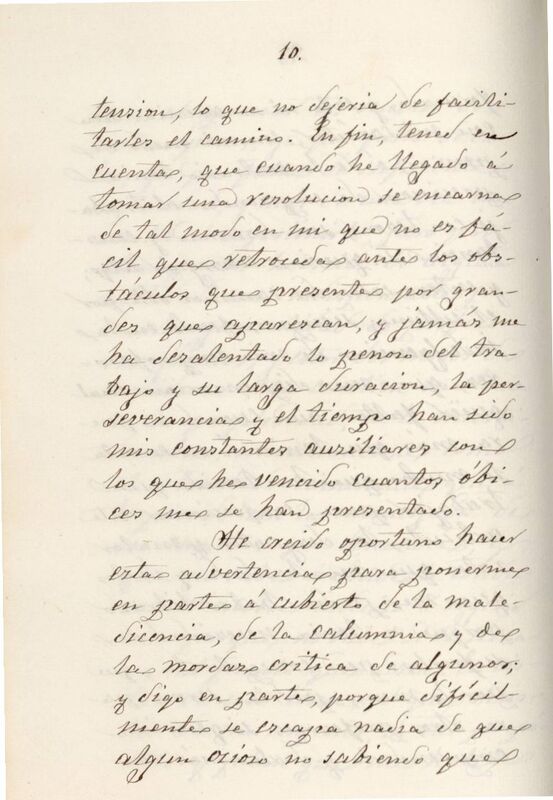 10.
tension, lo que no dejeria de facili-
tarles el camino. En fin, tened en
cuenta, que cuando he llegado á
tomar una resolucion se encarna
de tal modo en mi que no es fá-
cil que retroceda ante los obs-
táculos que presente por gran-
des que aparescan, y jamás me
ha desalentado lo penoso del tra-
bajo y su larga duracion, la per-
severancia y el tiempo han sido
mis constantes auxiliares con
los que he vencido cuantos óbi-
ces me se han presentado.
He creido oportuno hacer
esta advertencia para ponerme
en parte á cubierto de la male-
dicencia, de la calumnia y de
la mordaz critica de algunos;
y digo en parte, porque difícil-
mente se escapa nadie de que
algun ocioso no sabiendo que